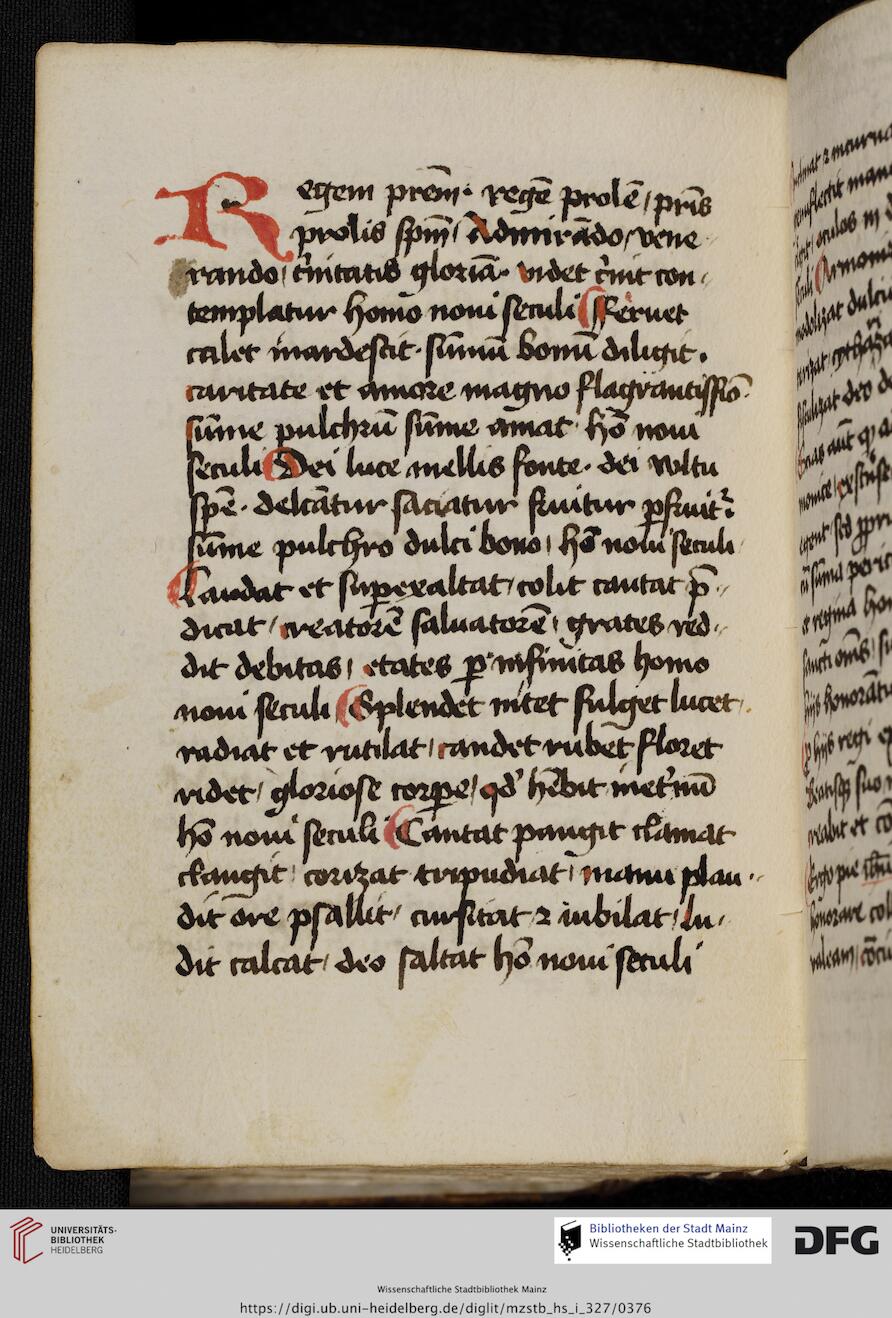 Regem prēm· regē prolē / prīs
prolis spm̄ / Admirādo / vene
rando / t'nitatis gloriā· videt t'nit con
templatur homo noui seculi Feruet
calet inardescit· sūmū bonū diligit·
caritate et amore magno flagrantissīo·
sūme pulchrū sūme amat· hō noui
seculi Dei luce mellis fonte· dei vvltu
spē· delcātur saciatur fruitur pfruit'
sūme pulchro dulci bono / hō noui seculi
Laudat et supexaltat / colit cantat p̄
dicat / creatorē saluatorē / grates red
dit debitas / etates p infinitas homo
noui seculi Splendet nitet fulget lucet
radiat et rutilat / candet rubet floret
ridet / gloriose corpe / qd' hēbit inet'nū
hō noui seculi Cantat pangit clamat
clangit / corizat tripudiat / manu plau
dit ore psallit / cursitat ⁊ iubilat / lu
dit calcat / deo saltat hō noui seculi
UNIVERSITÄTS-
BIBLIOTHEK
HEIDELBERG
Bibliotheken der Stadt Mainz
Wissenschaftliche Stadtbibliothek
DFG
Wissenschaftliche Stadtbibliothek Mainz
https://digi.ub.uni-heidelberg.de/diglit/mzstb_hs_i_327/0376